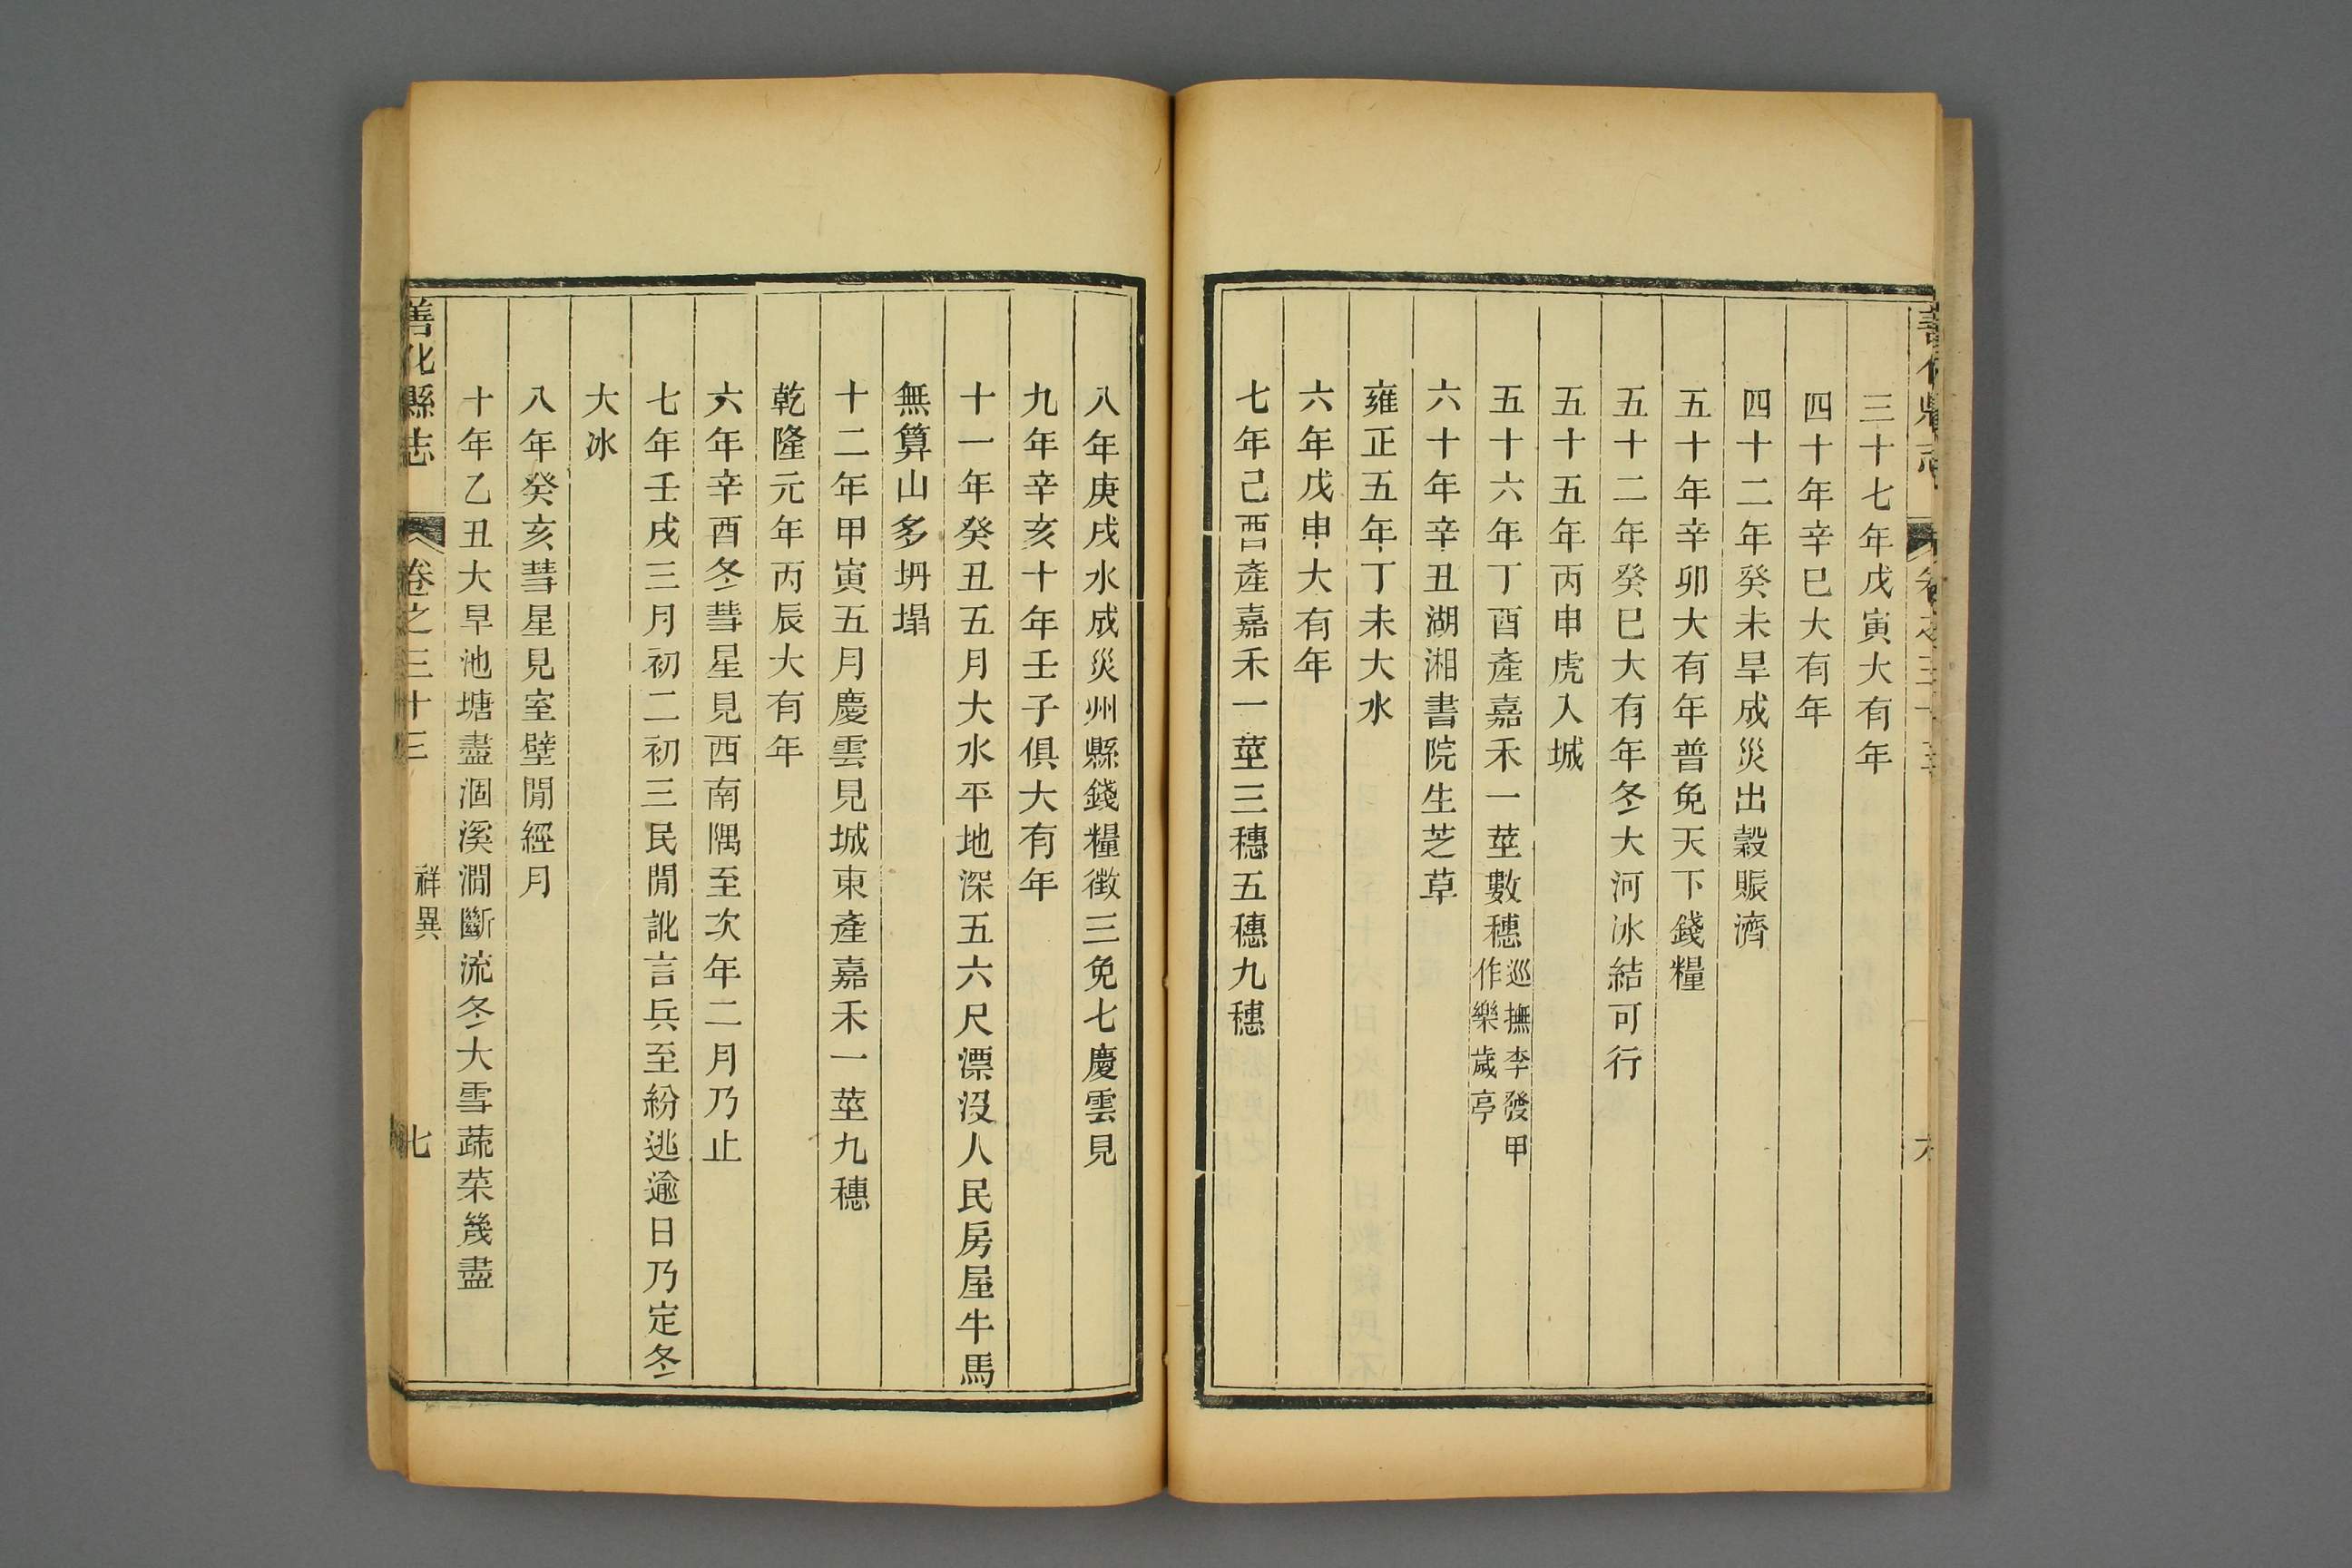 三十七年戊寅大有年
四十年辛巳大有年
四十二年癸未旱成災出穀賑濟
五十年辛卯大有年普免天下錢糧
五十二年癸巳大有年冬大河冰結可行
五十五年丙申虎入城
五十六年丁酉產嘉禾一莖數穗巡撫李發甲作樂歲亭
六十年辛丑湖湘書院生芝草
雍正五年丁未大水
六年戊申大有年
七年己酉產嘉禾一莖三穗五穗九穗
八年庚戌水成災州縣錢糧徵三免七慶雲見
九年辛亥十年壬子俱大有年
十一年癸丑五月大水平地深五六尺漂沒人民房屋牛馬
無算山多坍塌
十二年甲寅五月慶雲見城東產嘉禾一莖九穗
乾隆元年丙辰大有年
六年辛酉冬彗星見西南隅至次年二月乃止
七年壬戌三月初二初三民閒訛言兵至紛逃逾日乃定冬
大冰
八年癸亥彗星見室壁閒經月
十年乙丑大旱池塘盡涸溪澗斷流冬大雪蔬菜幾盡
善化縣志 卷之三十三 祥異 七